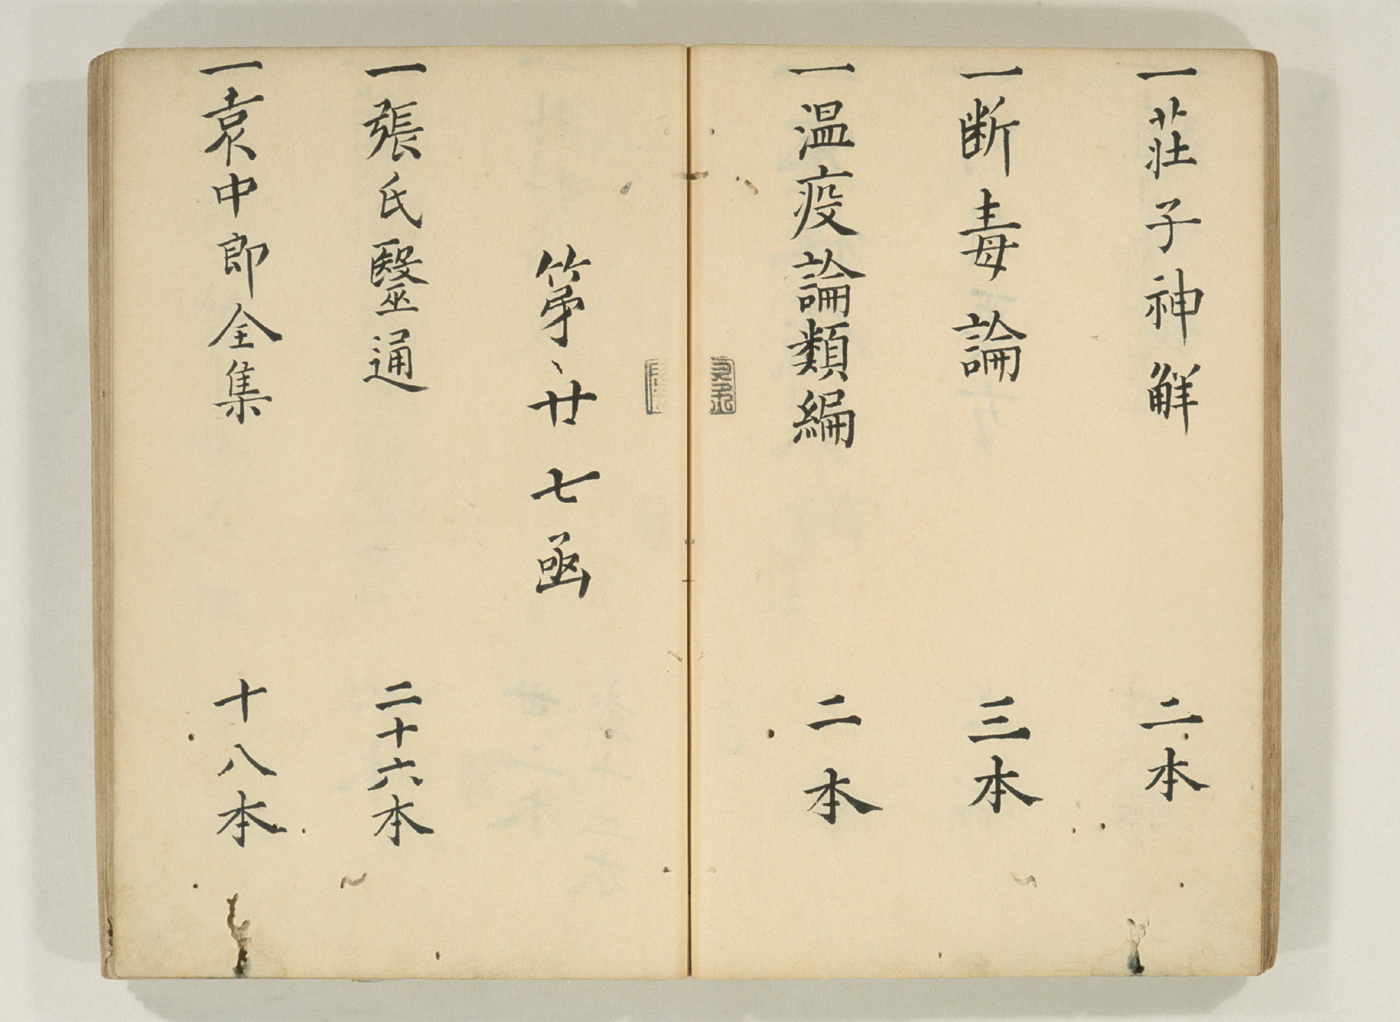 一莊子神解 二本
一断毒論 三本
一温疫論類編 二本
第廿七函
一張氏毉通 二十六本
一袁中郎全集 十八本